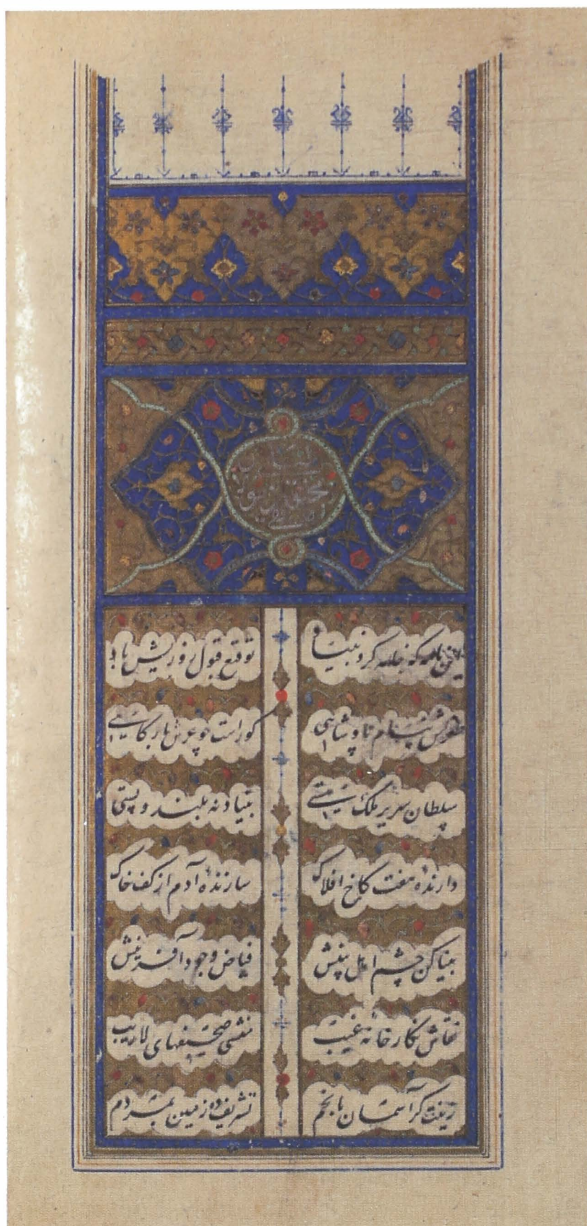 این نامه که خامه کرد بنیاد توقیع قبول روزیش باد
بنام پادشاهی کوراست چو عرش بارگاهی
سلطان سریر ملک هستی بنیاد نه بلند و پستی
دارنده هفت کاخ افلاک سازنده آدم از کف خاک
بینا کن چشم اهل بینش فیاض وجود آفرینش
نقاش نگارخانه غیب منشی صحیفهای لاریب
زینت گر آسمان بانجم تشریف ده زمین بمردم